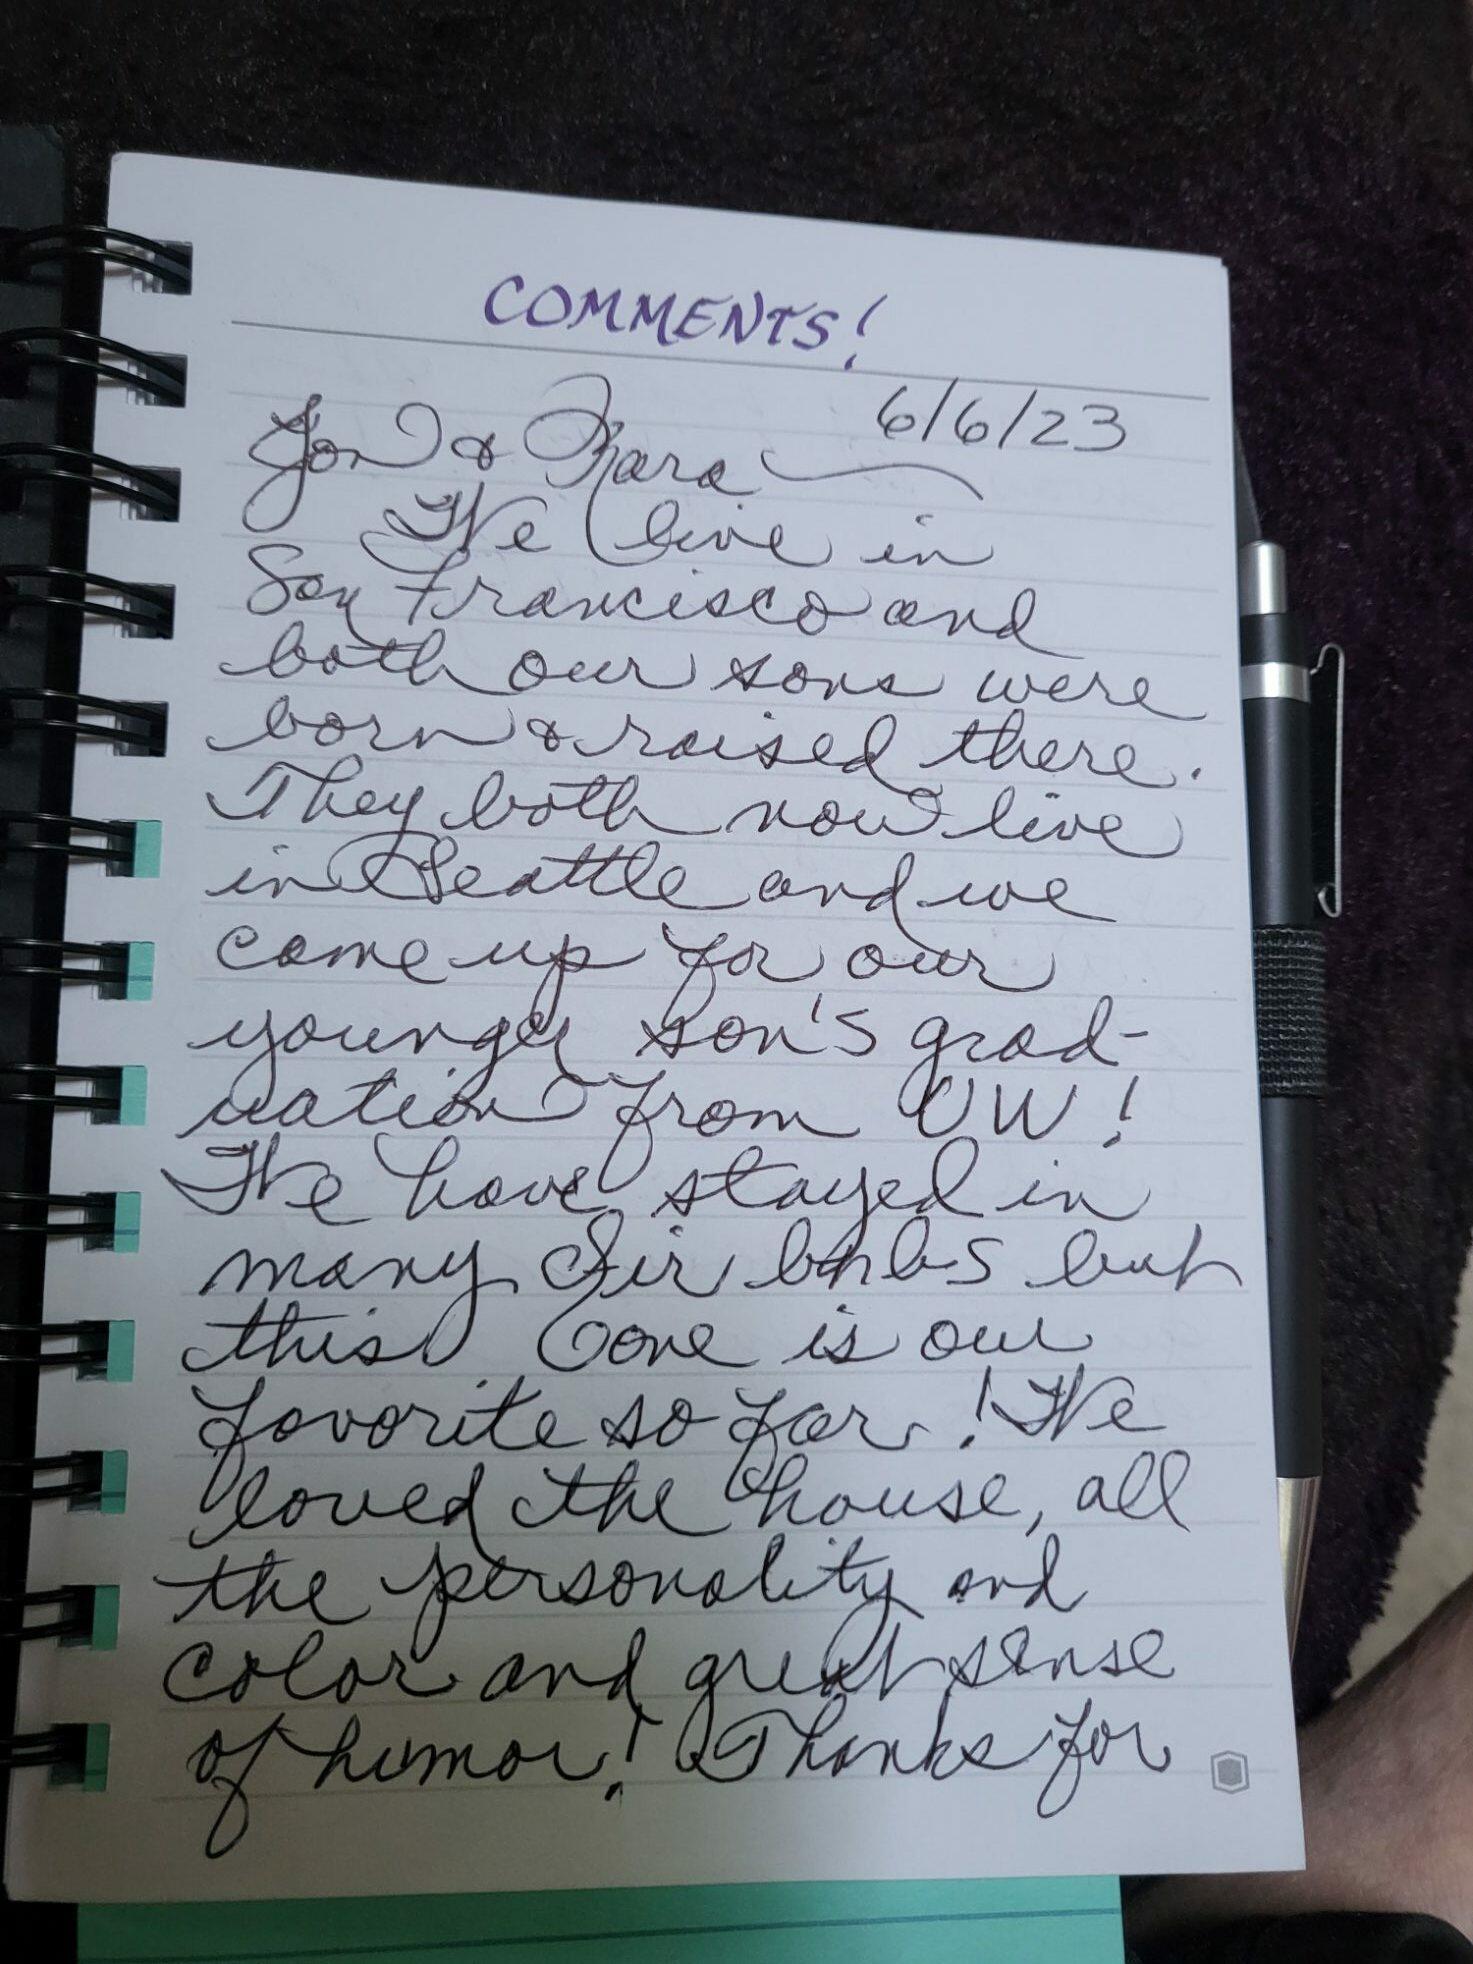 COMMENTS!
6/6/23
Jon & Kara
We live in
San Francisco and
both our sons were
born & raised there.
They both now live
in Seattle and we
came up for our
younger son's grad-
uation from UW!
We have stayed in
many Air bnbs but
this one is our
favorite so far! We
loved the house, all
the personality and
color and great sense
of humor! Thanks for